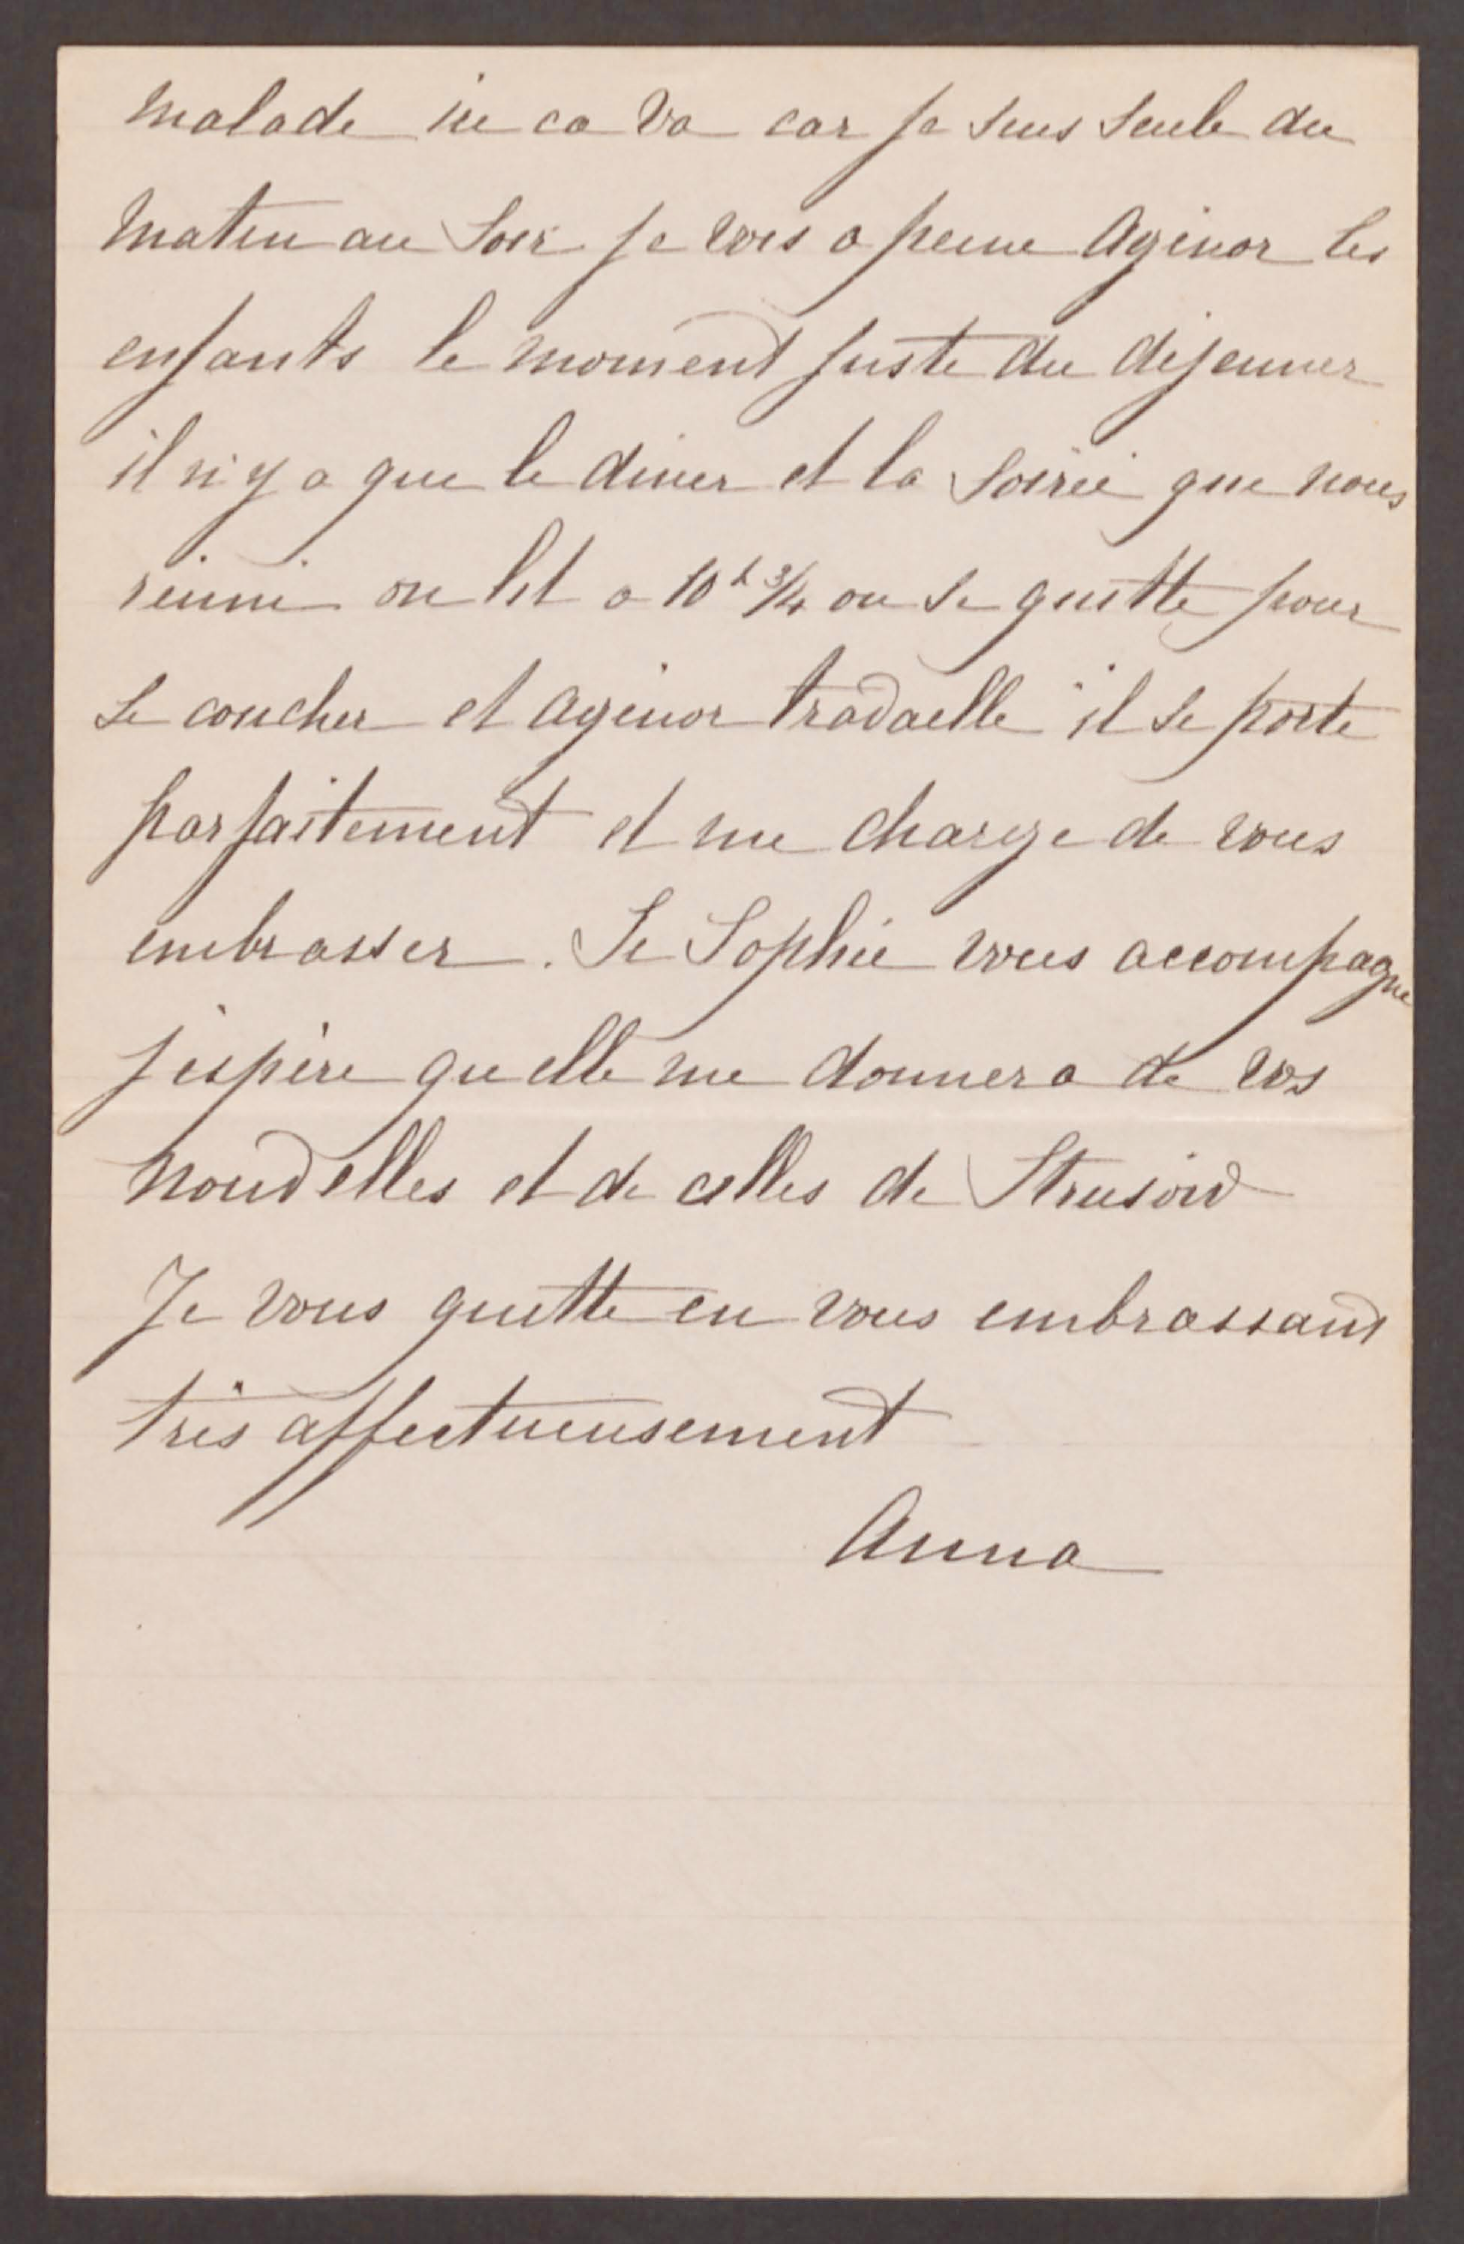 malade ca va car je suis seule du
matin au Soir je vois a peine Agénor les
enfants le moment juste du déjeuner
il n'y a que le diner et la Soirée que nous
réuni on lit a 10h 3/4 on se quitte pour
se coucher et Agénor travaelle il se porte
parfaitement et me charge de vous
embrasser. Si Sophie vous accompagne
j'espère quelle me donnera de vos
nouvelles et de celles de
Je vous quitte en vous embrassant
très affectueusement
Anna